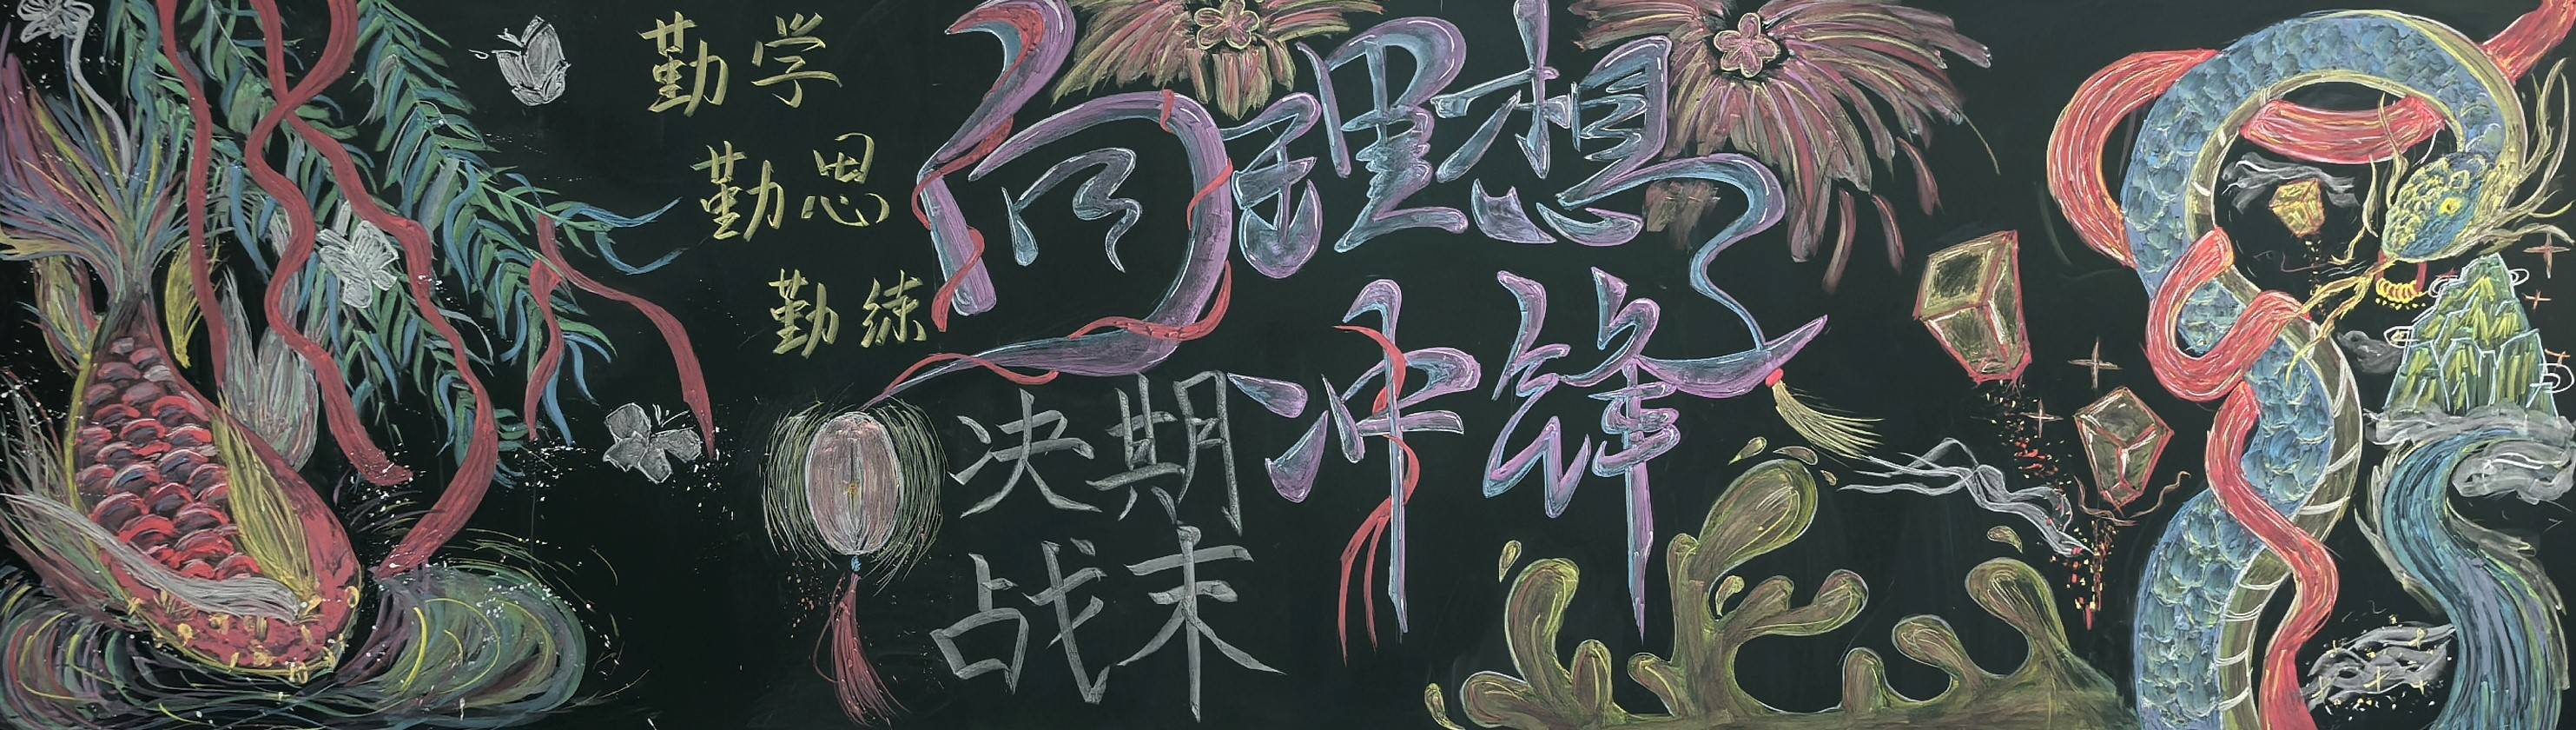 勤学
勤思
勤练
向理想
冲锋
决期
战末